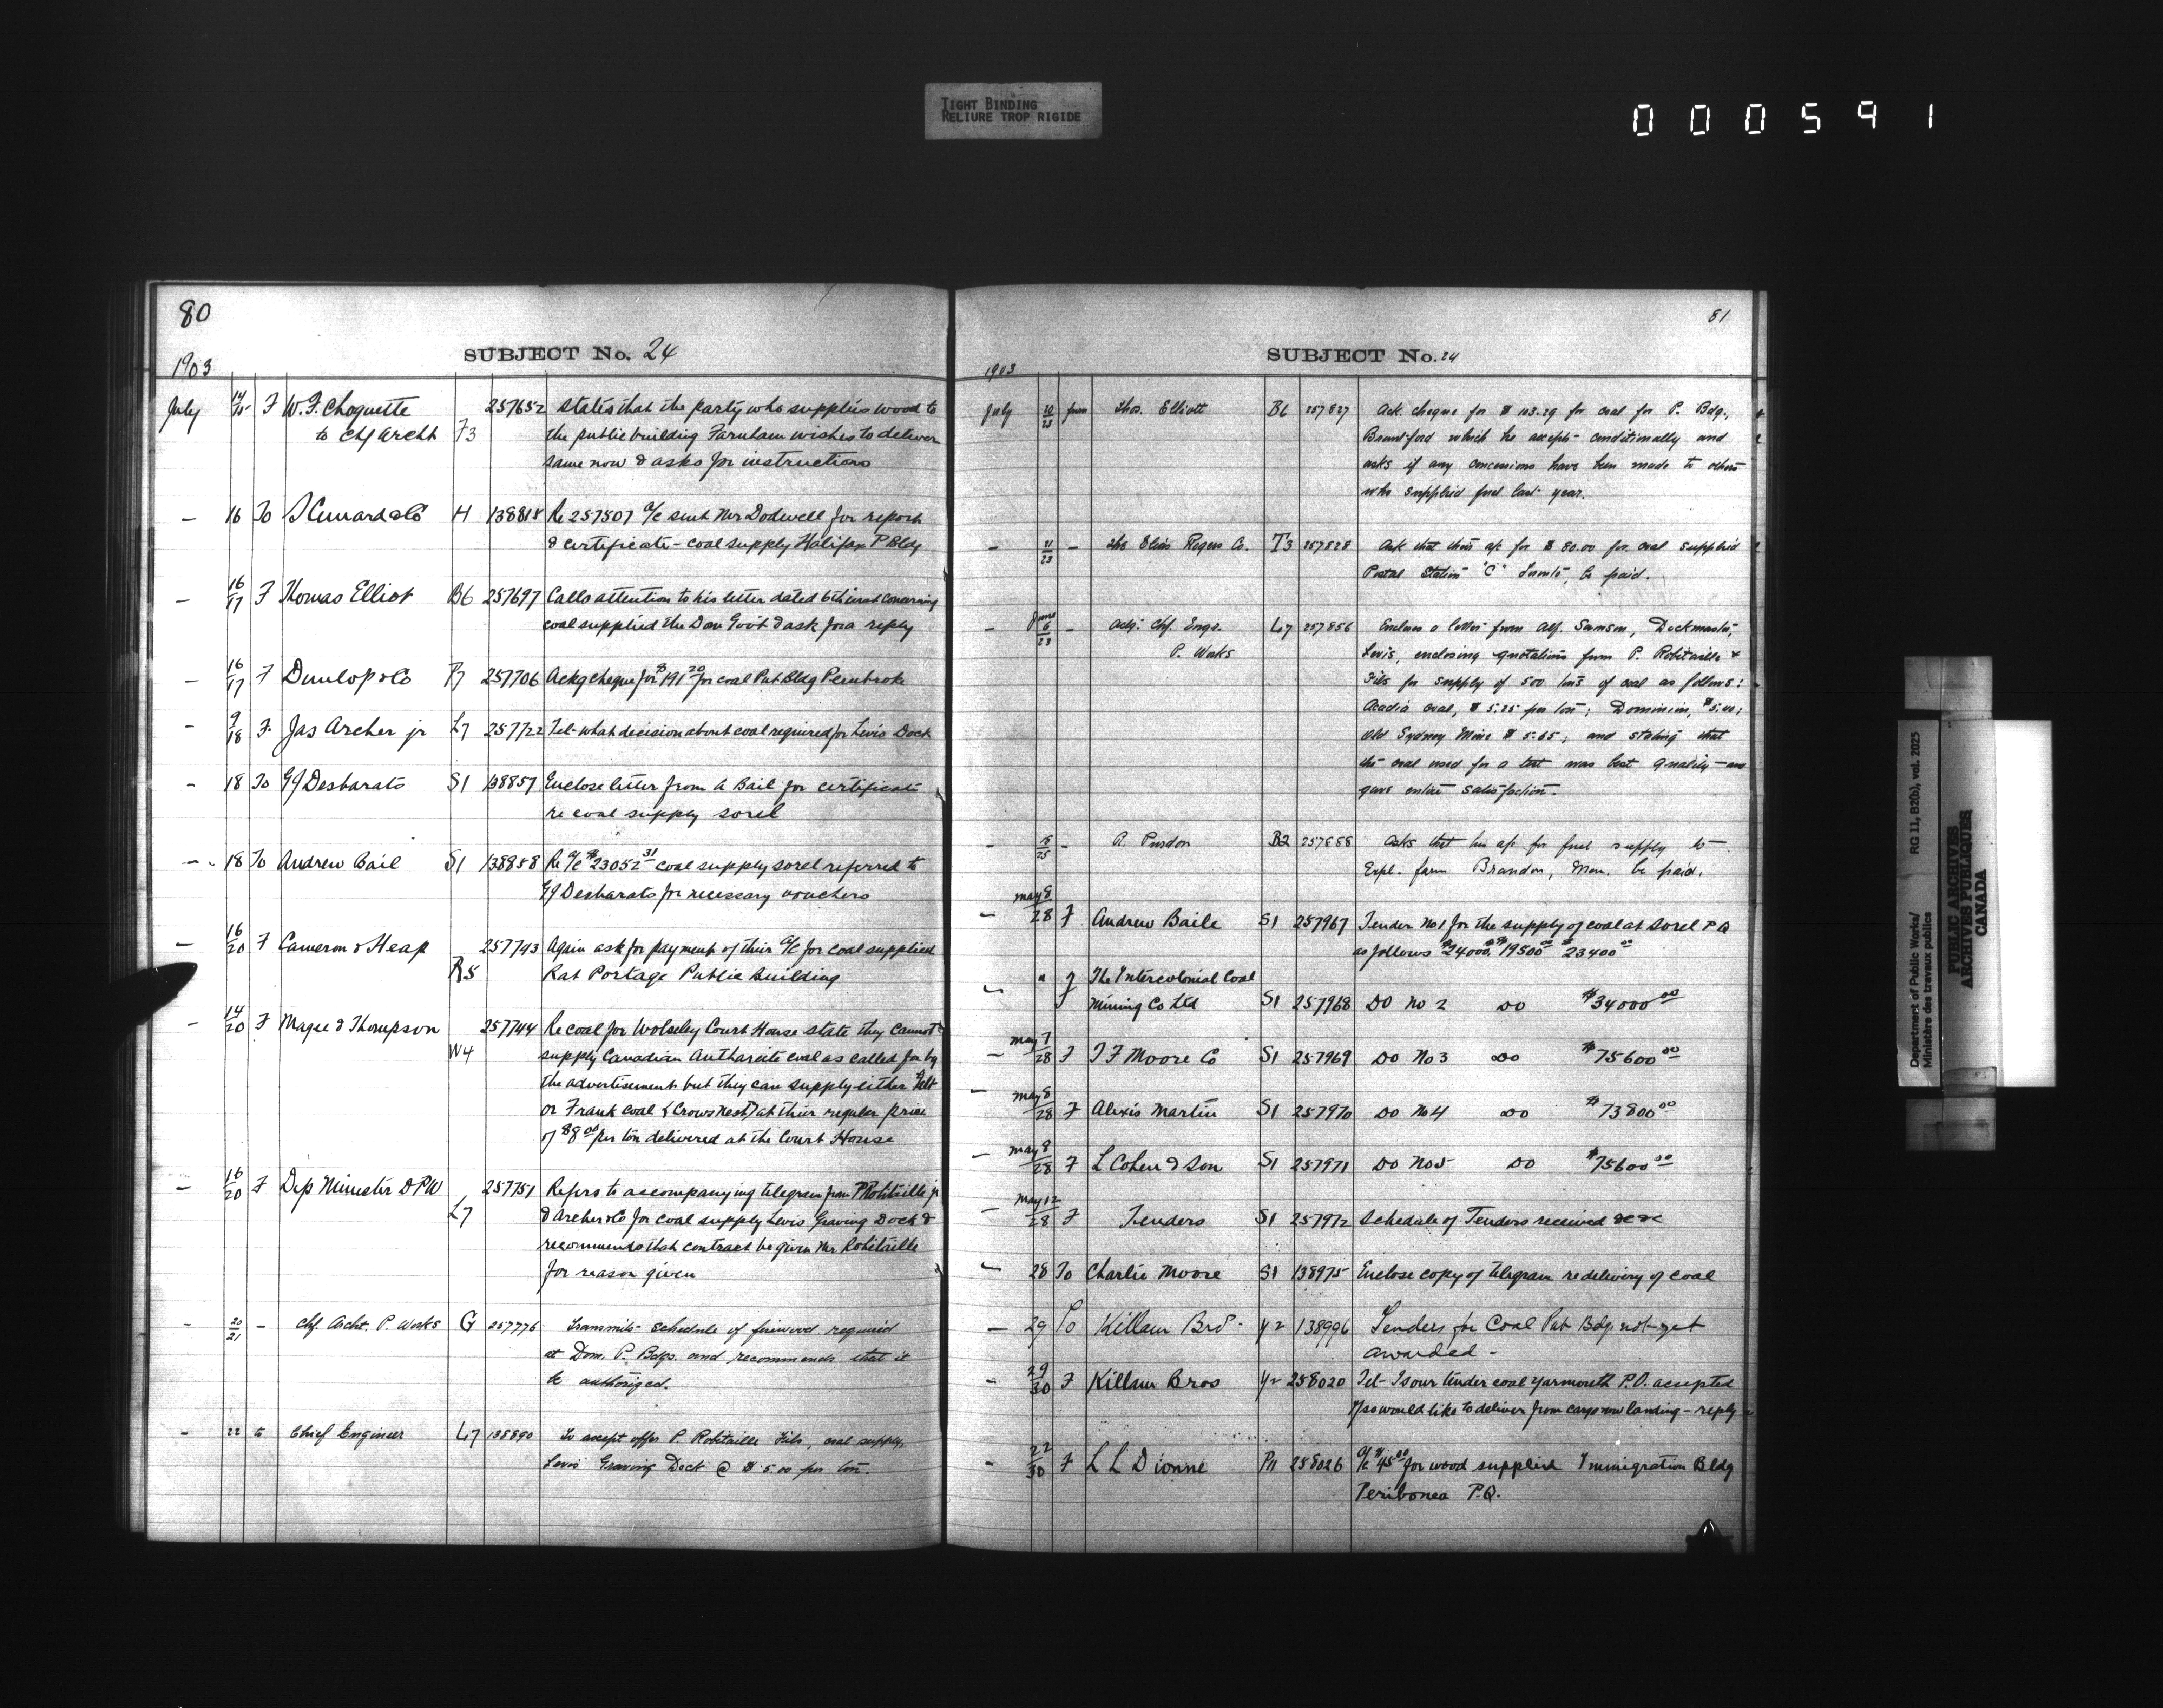 TIGHT BINDING
RELIURE TROP RIGIDE
000591
80
SUBJECT No. 24
1903
July 14/15 F W. F. Choquette 257652 states that the party who supplies wood to
to Chf Archt F3 the public building Farnham wishes to deliver
same now & asks for instructions
— 16 To S Cunard & Co H 138818 Re 257507 a/c sent Mr Dodwell for report
& certificate - coal supply Halifax P Bldg
— 16/17 F Thomas Elliot B6 257697 Calls attention to his letter dated 6th inst concerning
coal supplied the Dom Govt & ask for a reply
— 16/17 F Dunlop & Co P7 257706 Ackg cheque for $191 20 for coal Pub Bldg Pembroke
— 9/18 F. Jas Archer jr L7 257722 Tel- what decision about coal required for Levis Dock
— 18 To G J Desbarats S1 138857 Enclose letter from A Bail for certificate
re coal supply sorel
— 18 To Andrew Bail S1 138858 Re a/c $23052 31 coal supply sorel referred to
G J Desbarats for necessary vouchers
— 16/20 F Cameron & Heap 257743 Again ask for payment of their a/c for coal supplied
R5 Rat Portage Public Building
— 14/20 F Magee & Thompson 257744 Re coal for Wolseley Court House state they cannot
W4 supply Canadian Anthracite coal as called for by
the advertisement but they can supply either Galt
or Frank coal (Crows Nest) at their regular price
of $8 00 per ton delivered at the Court House
— 16/20 F Dep Minister DPW 257751 Refers to accompanying telegram from P Robitaille jr
L7 & Archer & Co for coal supply Levis Graving Dock &
recommends that contract be given Mr Robitaille
for reason given
— 20/21 — Chf. Archt. P. Works G 257776 Transmits schedule of firewood required
at Dom. P. Bdgs. and recommends that it
be authorized.
— 22 to Chief Engineer L7 138890 To accept offer P. Robitaille Fils, coal supply,
Levis Graving Dock @ $5.00 per ton.
81
SUBJECT No. 24
1903
July 20/23 from Thos. Elliott B6 257827 Ack. cheque for $113.29 for coal for P. Bdg.,
Brantford which he accepts conditionally and
asks if any concessions have been made to others
who supplied fuel last year.
— 21/23 — The Elias Rogers Co. T3 257828 Ask that their a/c for $80.00 for coal supplied
Postal Station "C" Toronto, be paid.
— June 6/23 — Actg. Chf. Engr. L7 257856 Encloses a letter from Alf. Samson, Dockmaster,
P. Works Levis, enclosing quotations from P. Robitaille &
Fils for supply of 500 tons of coal as follows:
Acadia coal, $5.25 per ton; Dominion, $5.00;
Old Sydney Mine $5.65; and stating that
the coal used for a test was best quality — and
gave entire satisfaction.
— /25 — P. Purdon B2 257858 Asks that his a/c for fuel supply to
Expl. farm Brandon, Man. be paid.
— May 8/28 F Andrew Baile S1 257967 Tender No 1 for the supply of coal at Sorel P Q
as follows $24000 $19500 00 $23400 00
" F The Intercolonial Coal
Mining Co Ltd S1 257968 DO No 2 DO $34000 00
— May 7/28 F T F Moore Co S1 257969 DO No 3 DO $75600 00
— May 8/28 F Alexis Martin S1 257970 DO No 4 DO $73800 00
— May 8/28 F L Cohen & Son S1 257971 DO No 5 DO $75600 00
— May 12/28 F Tenders S1 257972 Schedule of Tenders received &c &c
— 28 To Charlie Moore S1 138975 Enclose copy of telegram re delivery of coal
— 29 To Killam Bros Y2 138996 Tenders for Coal Pub Bdg not yet
awarded -
— 29/30 F Killam Bros Y2 258020 Tel- Is our tender coal Yarmouth P.O. accepted
if so would like to deliver from cargo now landing - reply
— 22/30 F L L Dionne P11 258026 a/c $45 00 for wood supplied Immigration Bldg
Peribonca P.Q.
Department of Public Works/ RG 11, 82(b), vol. 2025
Ministère des travaux publics
PUBLIC ARCHIVES
ARCHIVES PUBLIQUES
CANADA